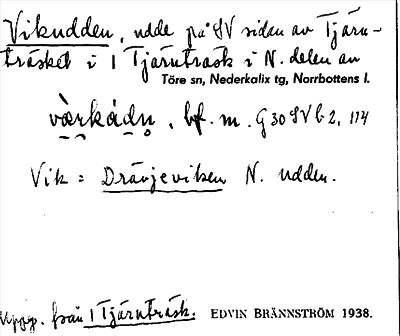 Vikudden, udde på SV sidan av Tjärn-
träsket i 1 Tjärnträsk i N. delen av
Töre sn, Nederkalix tg, Norrbottens l.
bf. m. G 30 SV b 2, 114
Vik = Drävjeviken N. udden.
Uppg. från 1 Tjärnträsk. EDVIN BRÄNNSTRÖM 1938.